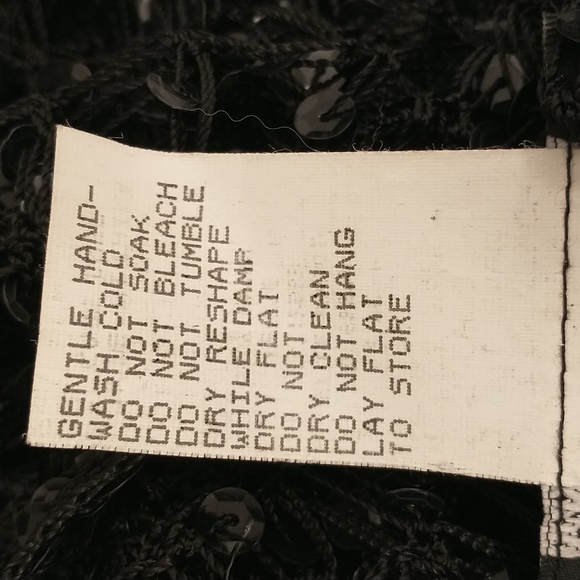 GENTLE HAND-
WASH COLD
DO NOT SOAK
DO NOT BLEACH
DO NOT TUMBLE
DRY RESHAPE
WHILE DAMP
DRY FLAT
DO NOT
DRY CLEAN
DO NOT HANG
LAY FLAT
TO STORE